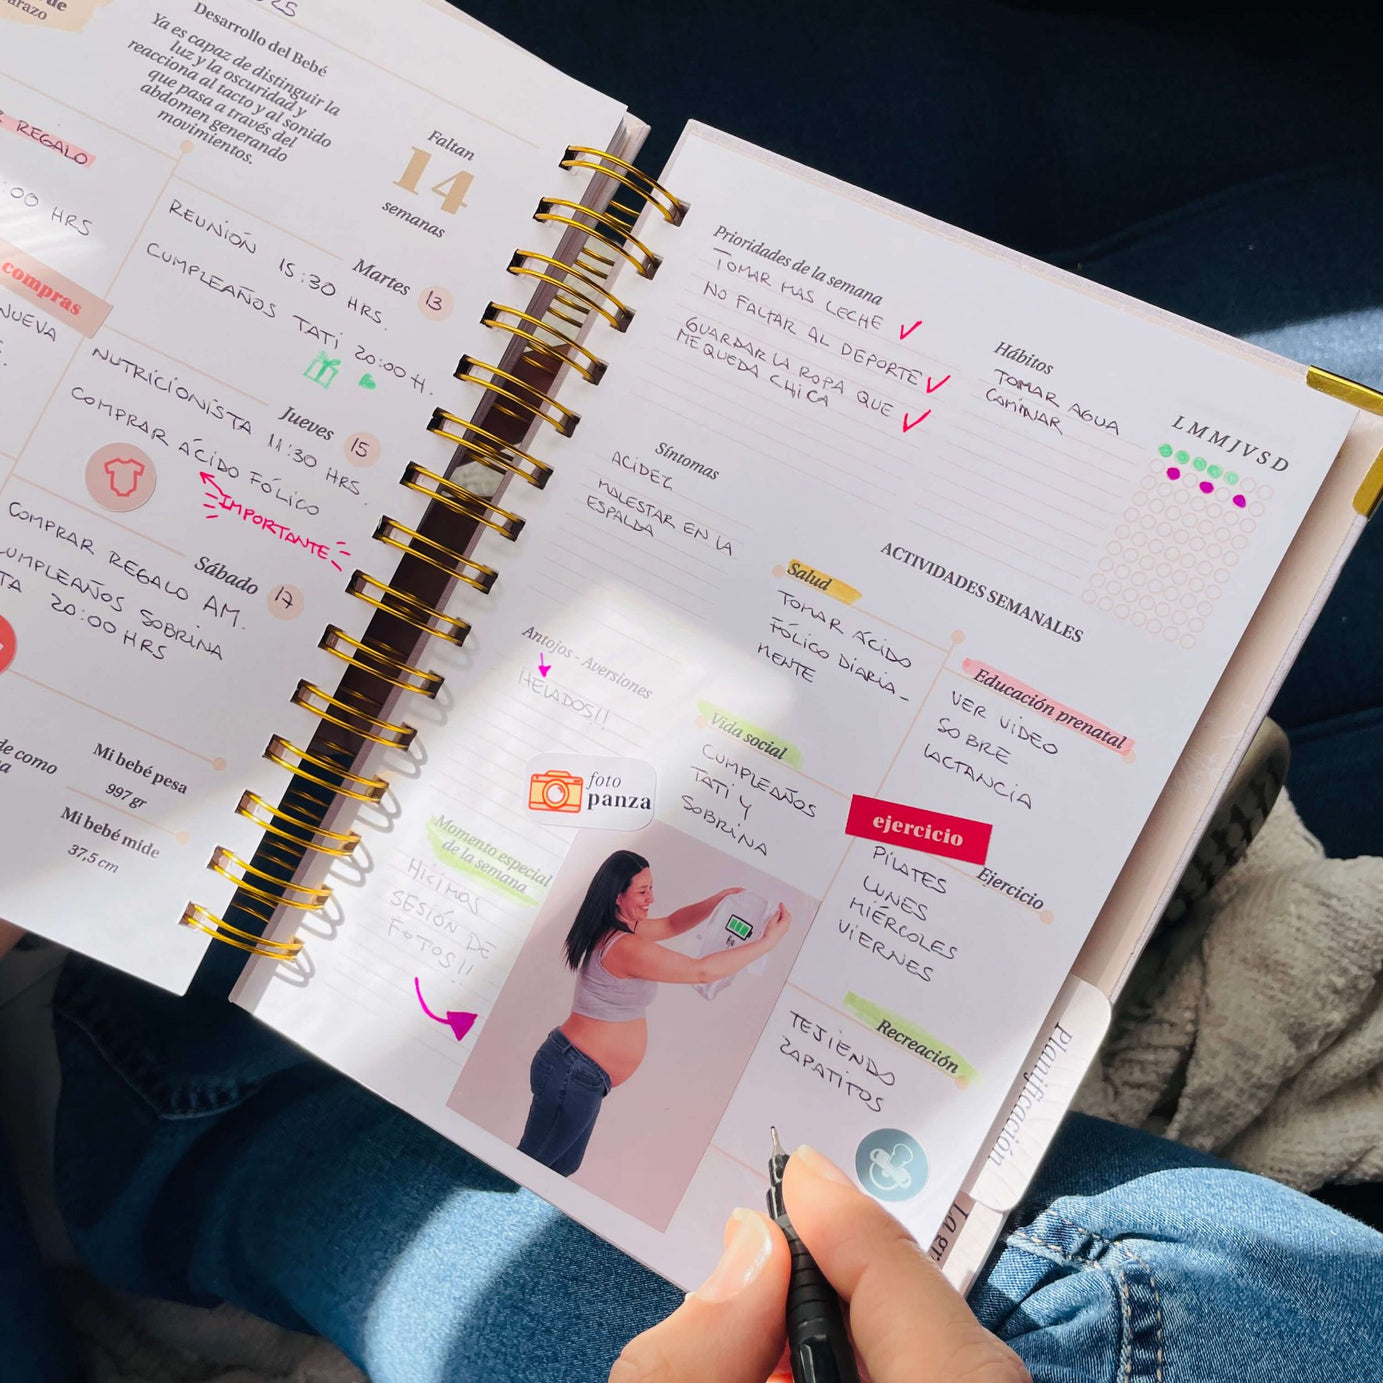 Desarrollo del Bebé
Ya es capaz de distinguir la
luz y la oscuridad y
reacciona al tacto y al sonido
que pasa a través del
abdomen generando
movimientos.
Faltan
14
semanas
REGALO
:00 HRS
compras
NUEVA
Martes 13
REUNIÓN 15:30 HRS.
CUMPLEAÑOS TATI 20:00 H.
Jueves 15
NUTRICIONISTA 11:30 HRS.
COMPRAR ÁCIDO FÓLICO
IMPORTANTE
Sábado 17
COMPRAR REGALO AM.
CUMPLEAÑOS SOBRINA
20:00 HRS
de como
Mi bebé pesa
997 gr
Mi bebé mide
37,5 cm
Prioridades de la semana
TOMAR MAS LECHE
NO FALTAR AL DEPORTE
GUARDAR LA ROPA QUE
ME QUEDA CHICA
Hábitos
TOMAR AGUA
CAMINAR
L M M J V S D
Síntomas
ACIDEZ
MALESTAR EN LA
ESPALDA
Antojos - Aversiones
HELADOS!!
foto
panza
Momento especial
de la semana
HICIMOS
SESIÓN DE
FOTOS!!
ACTIVIDADES SEMANALES
Salud
TOMAR ÁCIDO
FÓLICO DIARIA-
MENTE
Educación prenatal
VER VIDEO
SOBRE
LACTANCIA
Vida social
CUMPLEAÑOS
TATI Y
SOBRINA
ejercicio
Ejercicio
PILATES
LUNES
MIÉRCOLES
VIERNES
Recreación
TEJIENDO
ZAPATITOS
Planificación
La gr